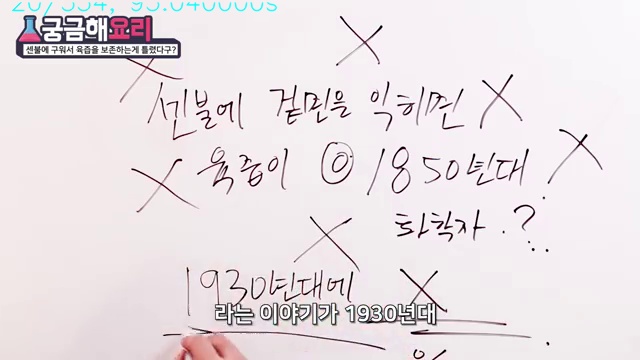 20/334, 93.040000s
궁금해요리
센불에 구워서 육즙을 보존하는게 틀렸다구?
센불에 겉면을 익히면
육즙이 ◎ 1850년대
화학자.?
1930년대에 X
라는 이야기가 1930년대
%